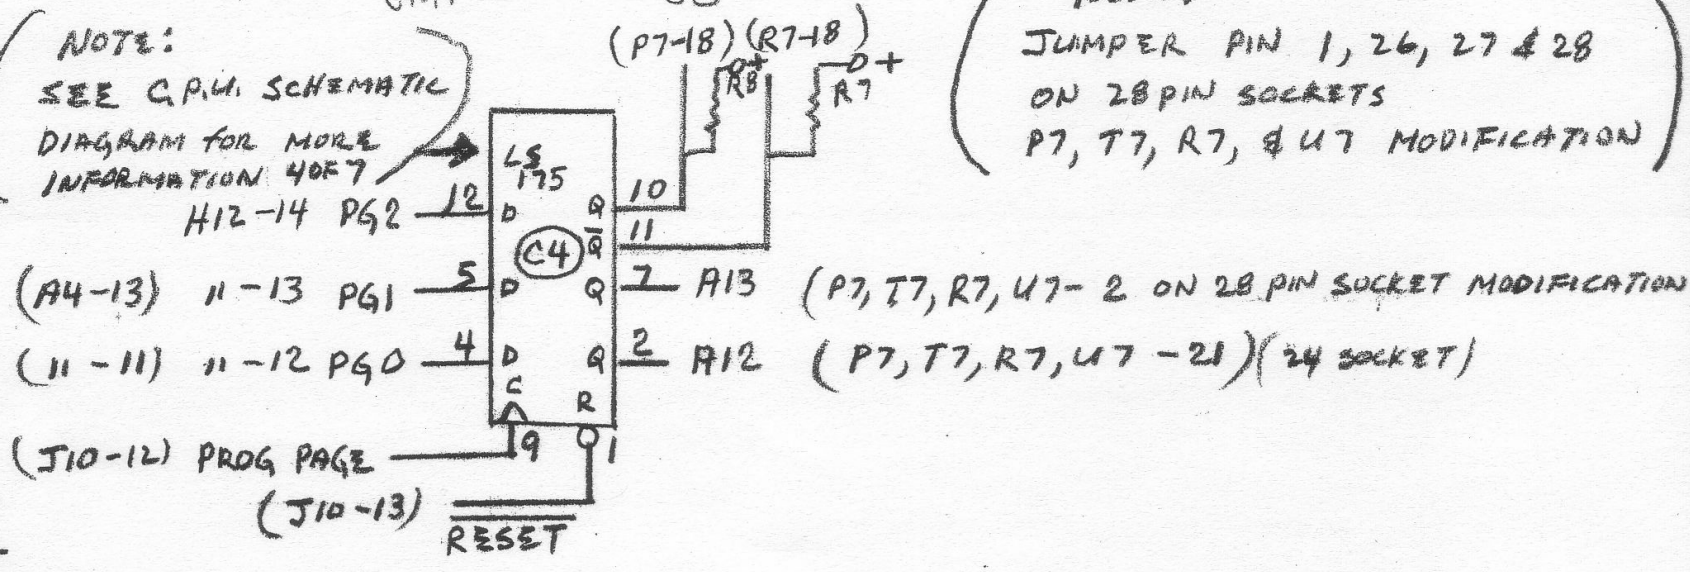 (P7-18) (R7-18)
NOTE:
SEE C.P.U. SCHEMATIC
DIAGRAM FOR MORE
INFORMATION 4 OF 7
JUMPER PIN 1, 26, 27 & 28
ON 28 PIN SOCKETS
P7, T7, R7, & U7 MODIFICATION
+
R8
+
R7
LS
175
H12-14 PG2 12 D Q 10
C4
Q̅ 11
(A4-13) 11-13 PG1 5 D Q 7 A13 (P7, T7, R7, U7- 2 ON 28 PIN SOCKET MODIFICATION
(11-11) 11-12 PG0 4 D Q 2 A12 (P7, T7, R7, U7 -21)(24 SOCKET)
C R
(J10-12) PROG PAGE 9 1
(J10-13)
RESET